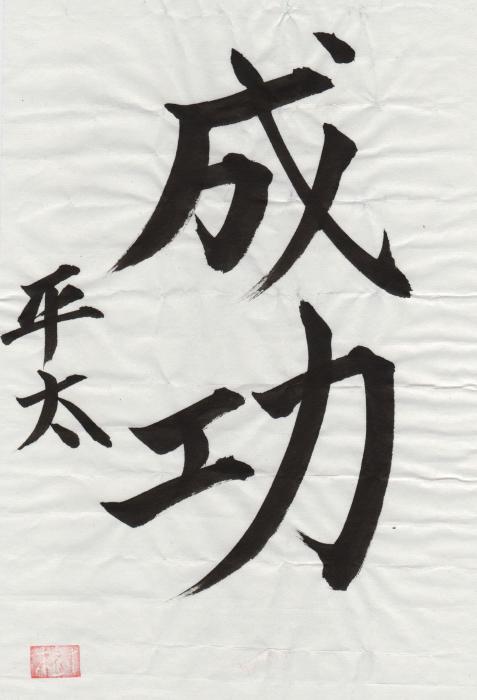 成功
平太